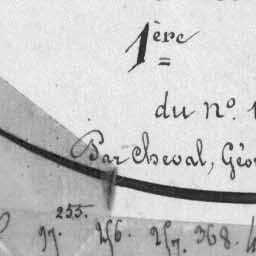 1ère
du no. 1
Par Cheval, Géo
255.
97. 256. 257. 368.